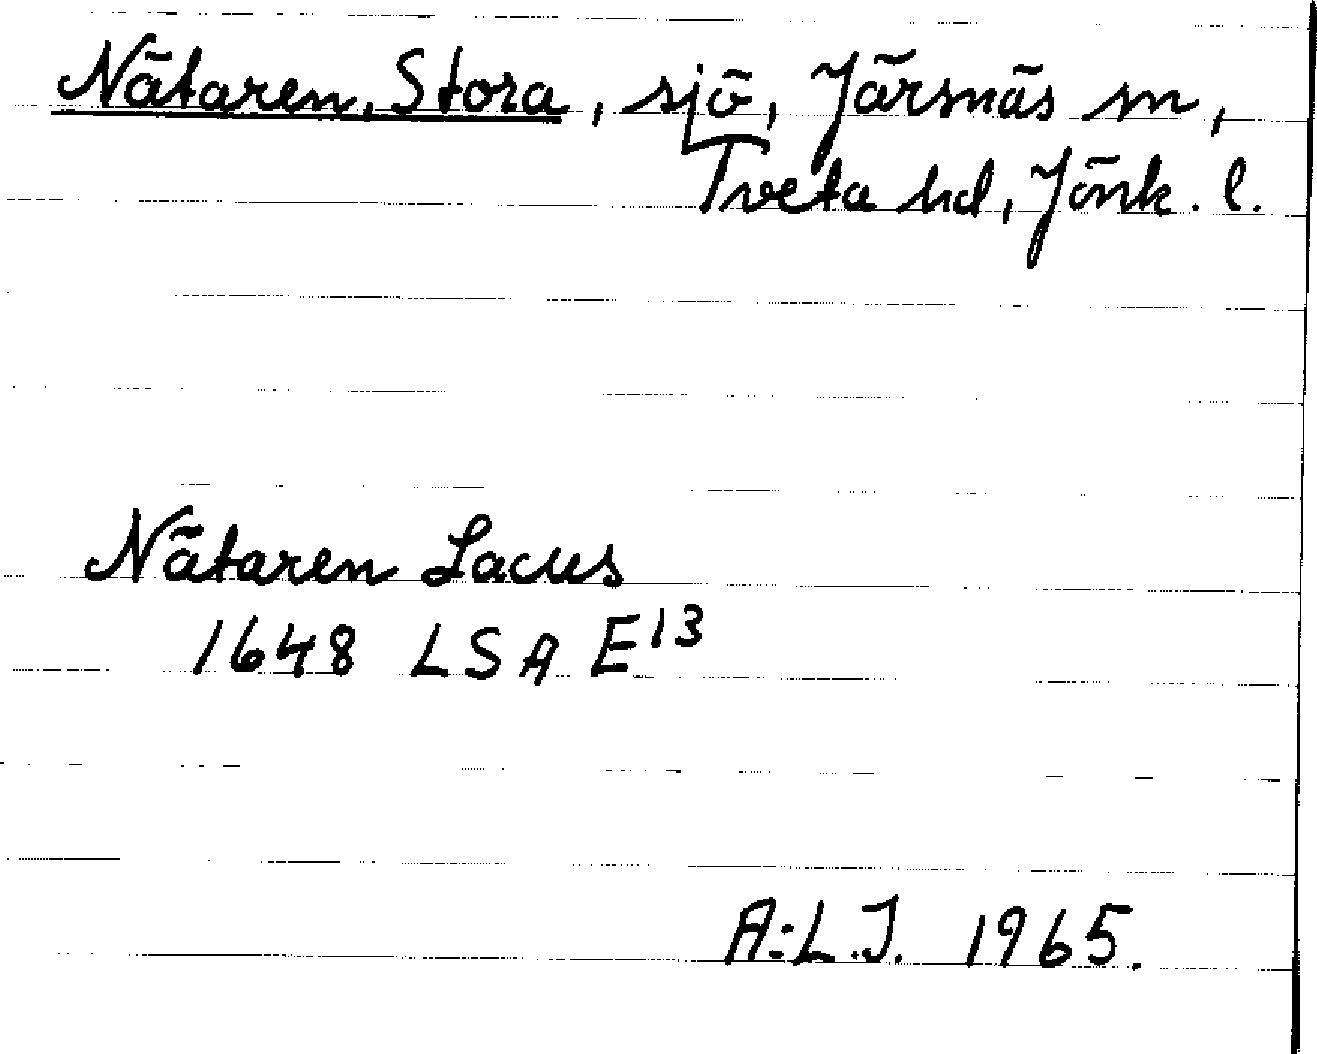 Nätaren, Stora, sjö, Järsnäs sn,
Tveta hd, Jönk. l.
Nätaren Lacus
1648 LSA E¹³
A:L.J. 1965.